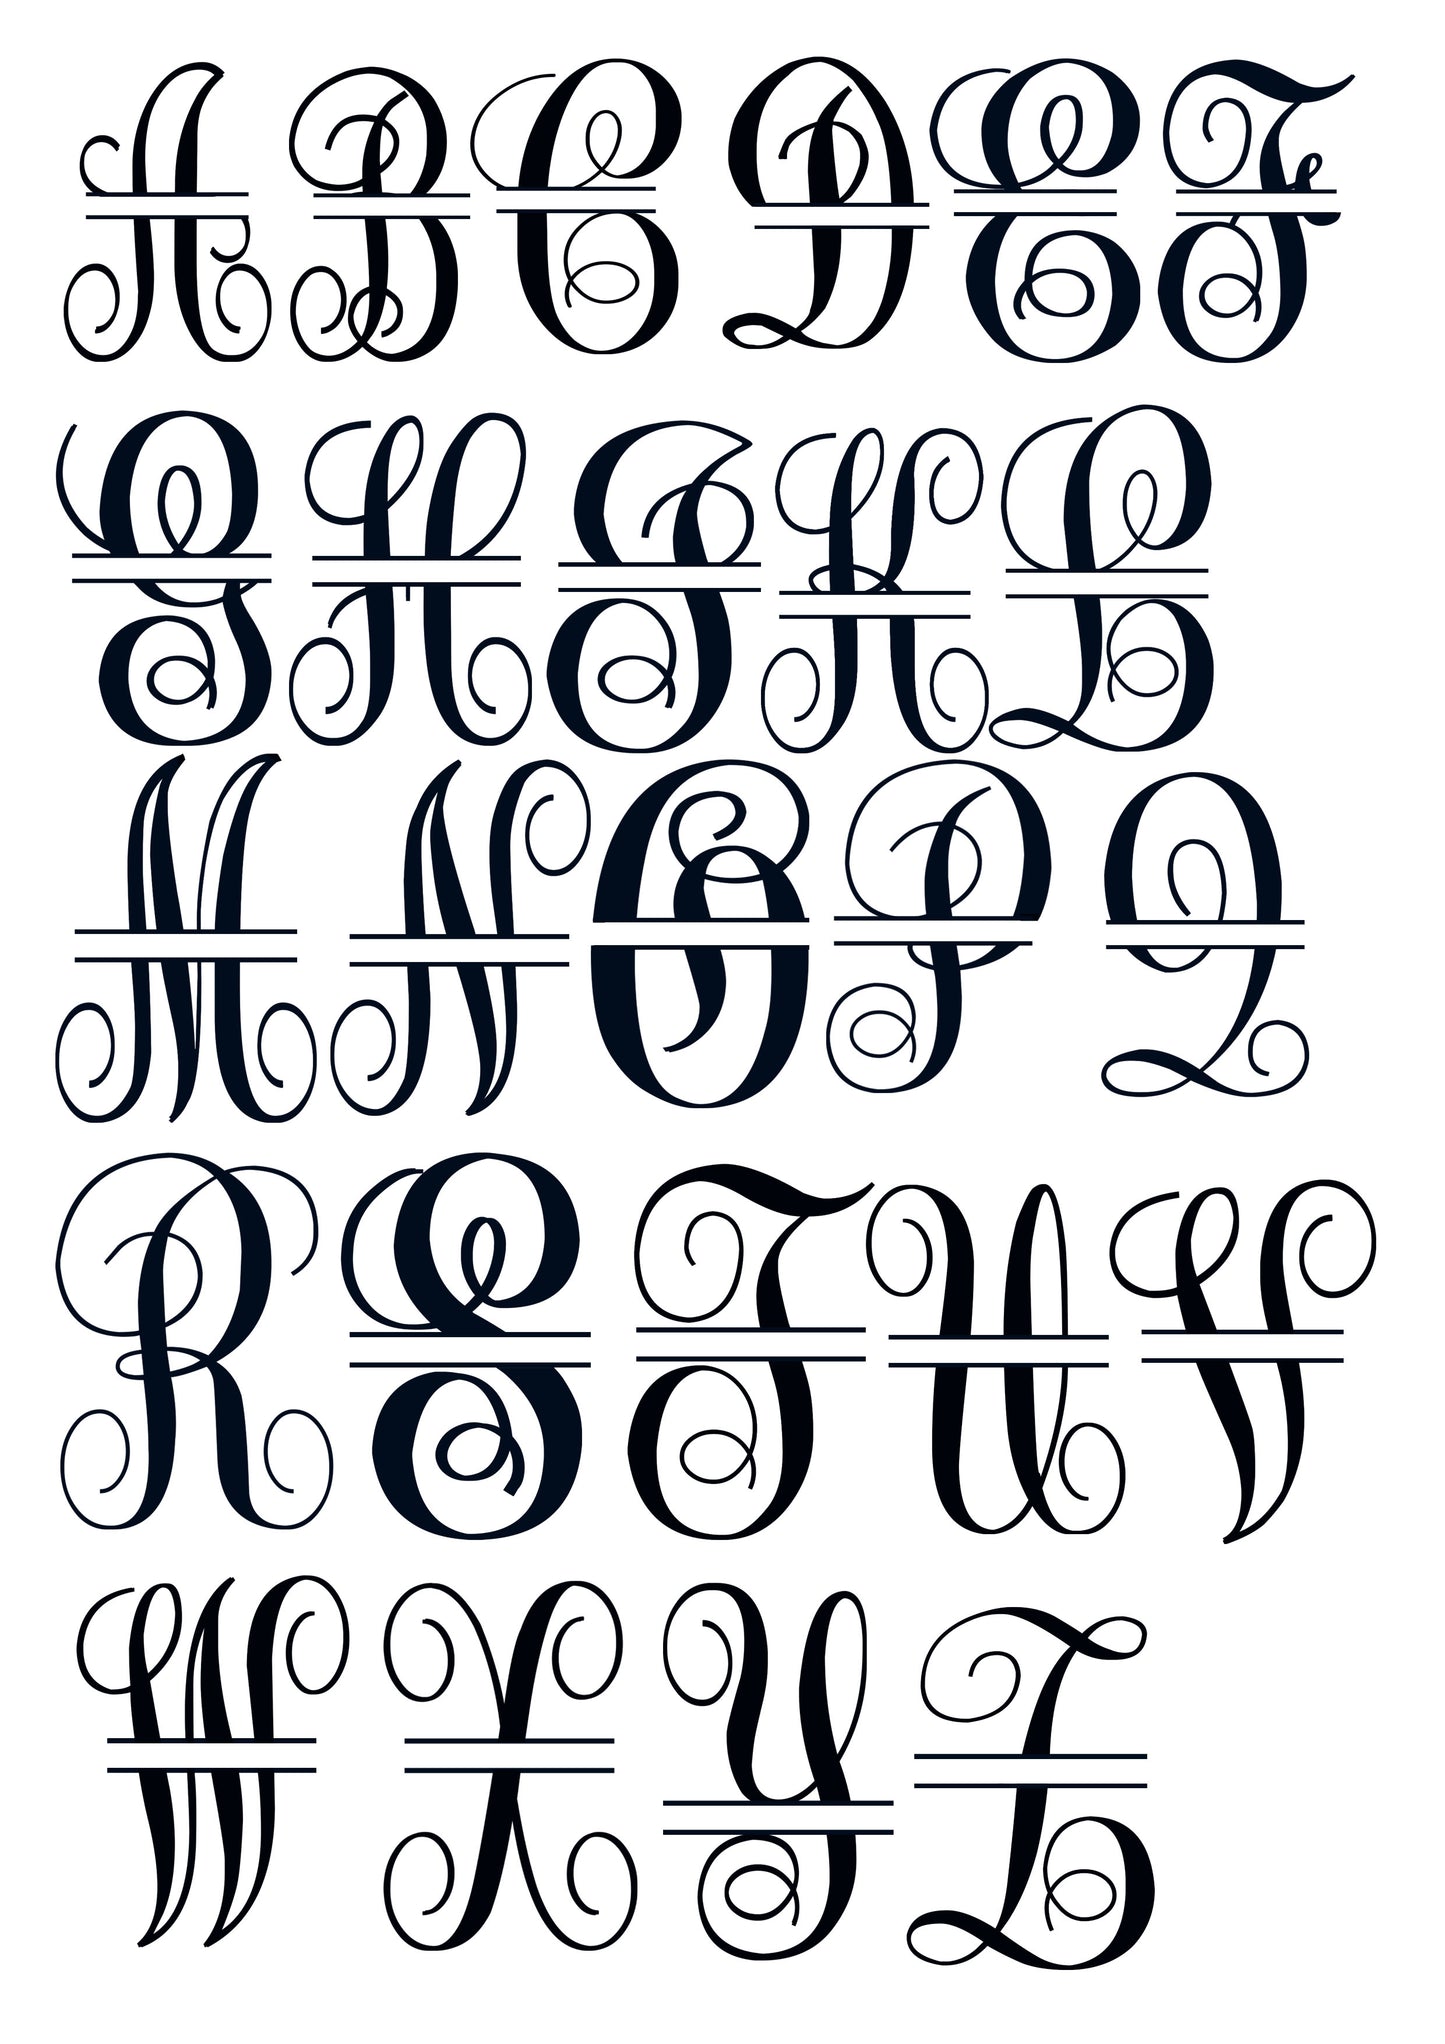 A B C D E F
G H J K L
M N O P Q
R S T U V
W X Y Z